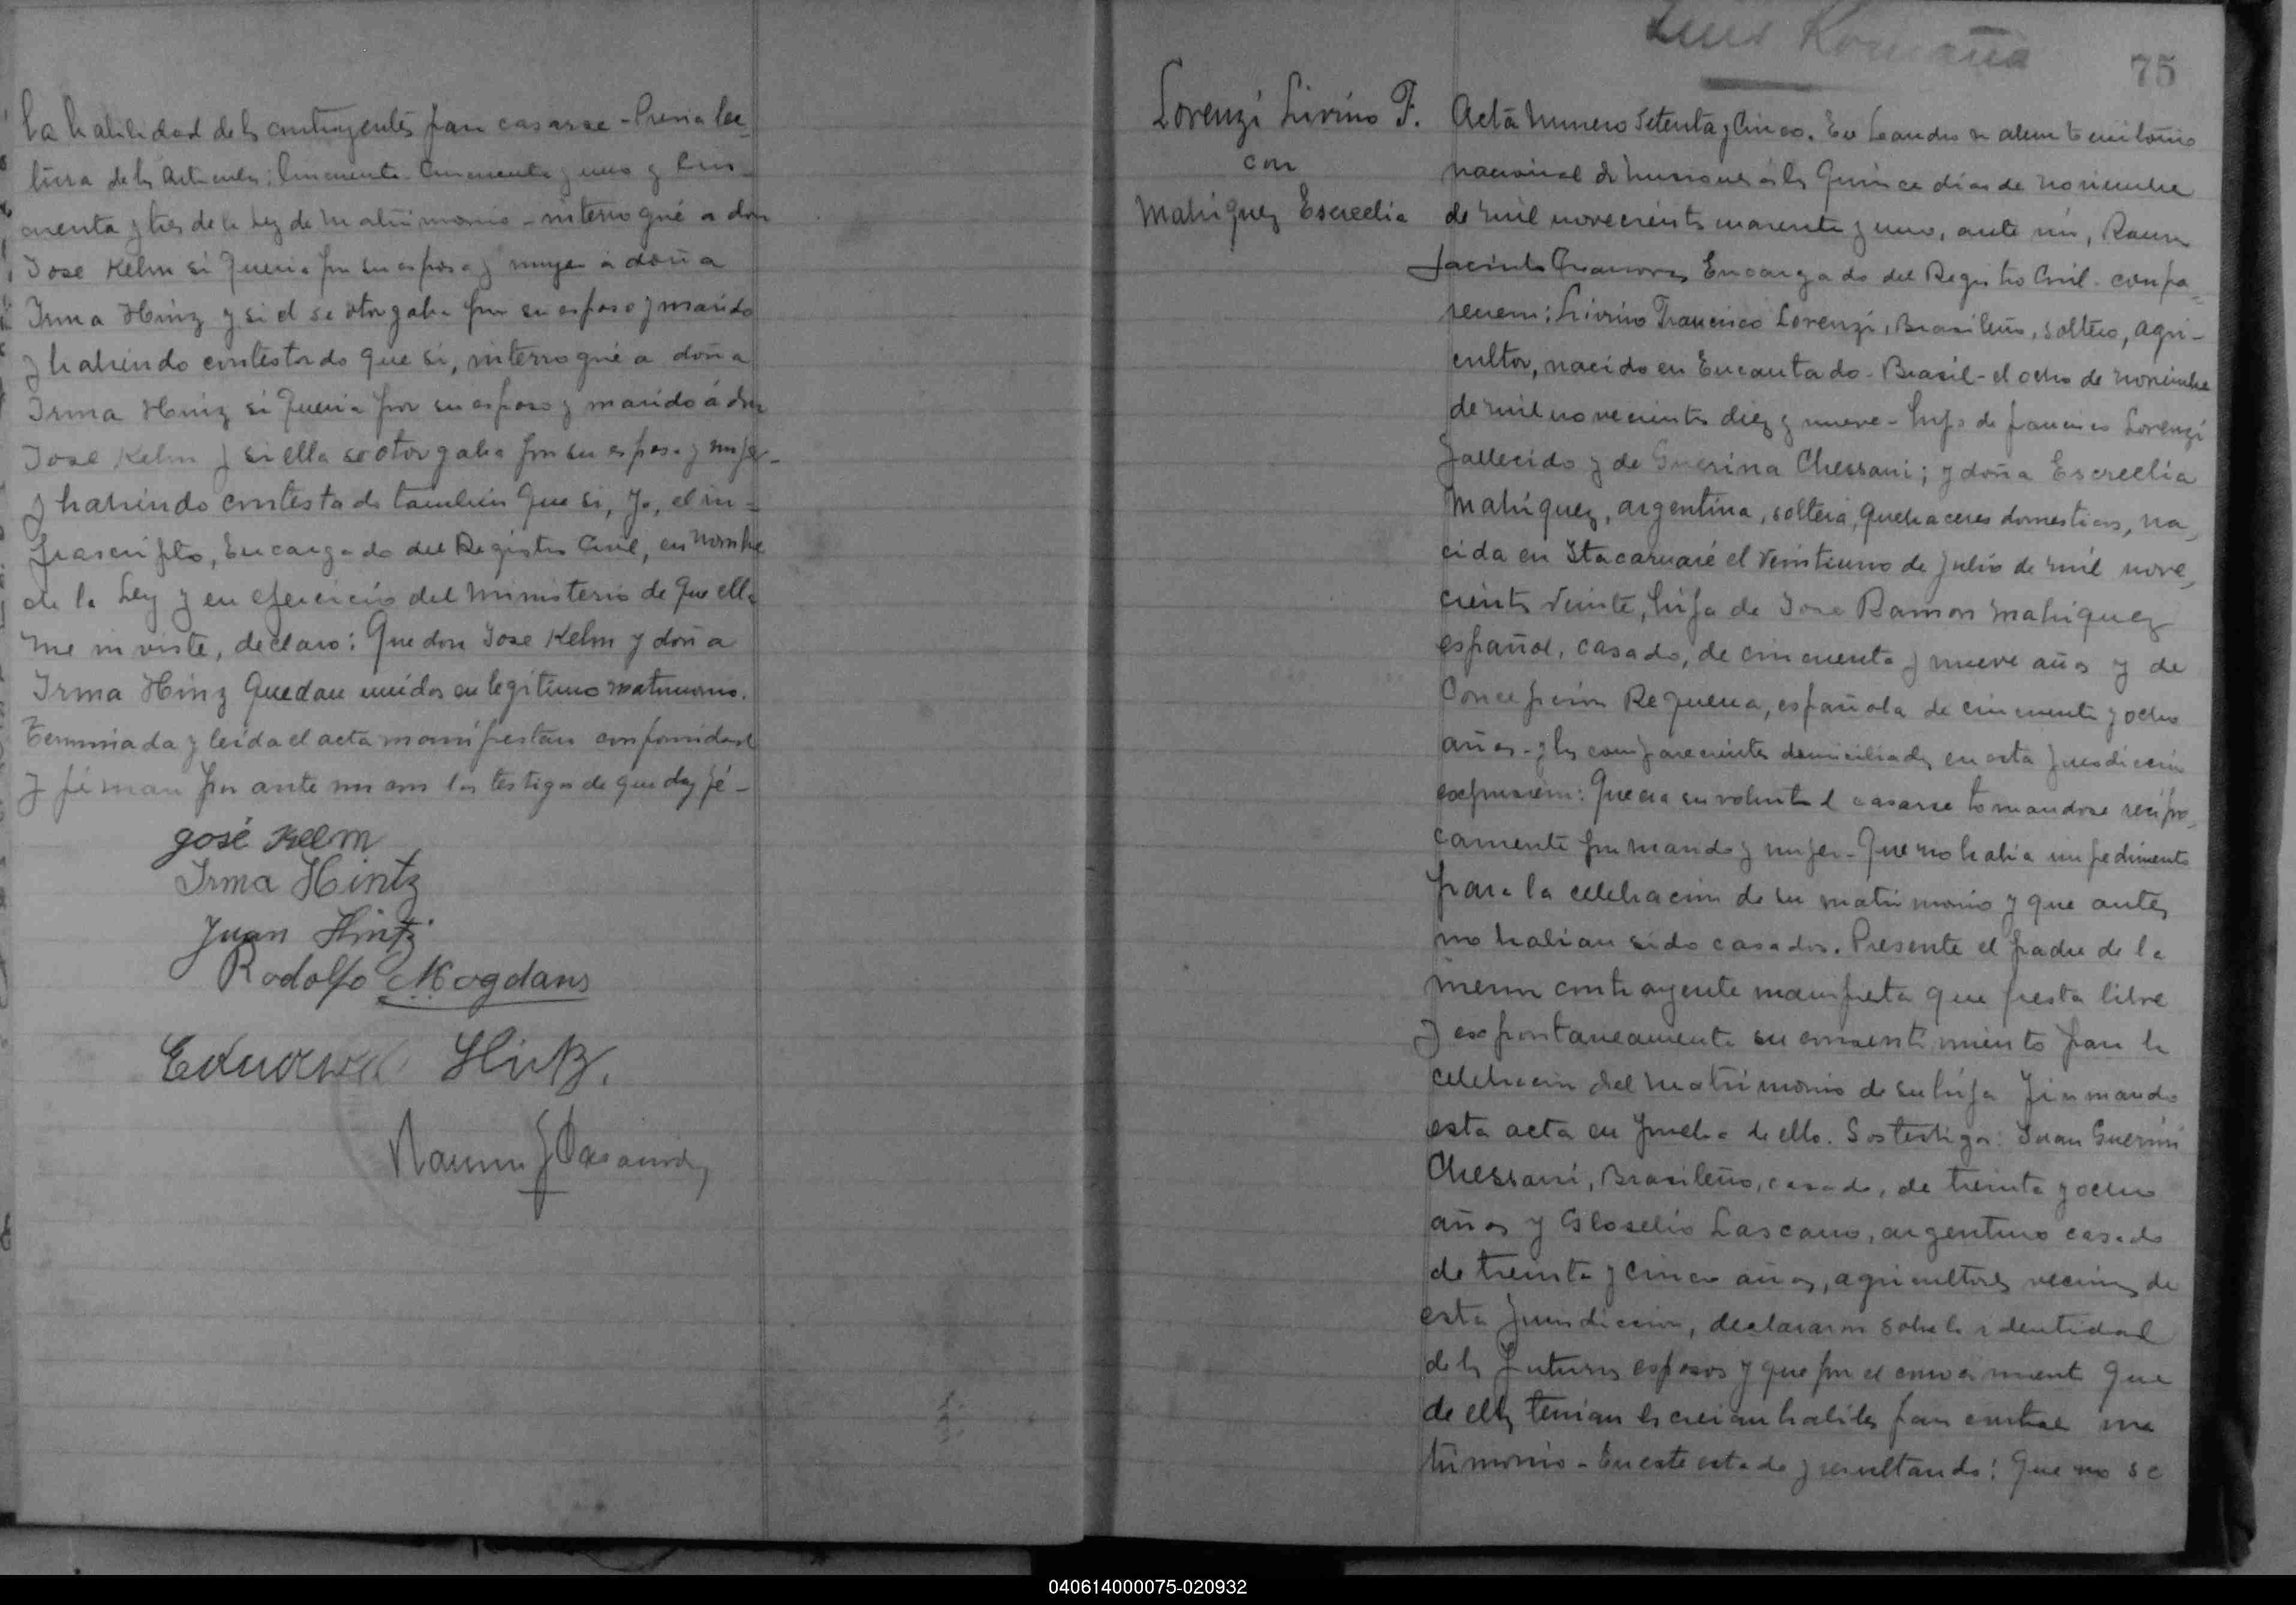 la habilidad de ls contrayentes para casarse - Previa lec-
tura de ls Articulos: Cincuenta - Cincuenta y uno y Cin-
cuenta y tres de la Ley de Matrimonio - interrogué a don
Jose Kelm si queria por su esposa y mujer á doña
Irma Hinz y si el se otorgaba por su esposo y marido
y habiendo contestado que si, interrogué a doña
Irma Hinz si queria por su esposo y marido á don
Jose Kelm y si ella se otorgaba por su esposa y mujer-
y habiendo contestado tambien que si, Yo, el in-
frascripto, Encargado del Registro Civil, en nombre
de la Ley y en ejercicio del Ministerio de que ella
me inviste, declaro: Que don Jose Kelm y doña
Irma Hinz quedan unidos en legitimo matrimonio.
Terminada y leida el acta manifiestan conformidad
y firman por ante mi con los testigos de que doy fé -
José Kelm
Irma Hintz
Juan Hintz
Rodolfo Mogdans
Hintz.
75
Lorenzi Livino F.
con
Mahiquez Escreelia
Acta numero Setenta y Cinco. En Leandro N Alem territorio
nacional de Misiones á ls Quince dias de noviembre
de mil novecients cuarenta y uno, ante mi, Ramon
Jacinto Encargado del Registro Civil - compa-
recen: Livino Francisco Lorenzi, Brasileño, soltero, agri-
cultor, nacido en Encantado - Brasil - el ocho de noviembre
de mil novecientos diez y nueve - hijo de francisco Lorenzi
fallecido y de Guerina Chessani; y doña Escreelia
Mahiquez, argentina, soltera, quehaceres domesticos, na-
cida en Itacaruaré el veintiuno de Julio de mil nove-
cients veinte, hija de Jose Ramon Mahiquez
español, casado, de cincuenta y nueve años y de
Concepcion Requena, española de cincuenta y ocho
años - y ls comparecientes domiciliados en esta jurisdiccion
expresaron: Que era su voluntad casarse tomandose recipro-
camente por marido y mujer - Que no habia impedimento
para la celebracion de su matrimonio y que antes
no habian sido casados. Presente el padre de la
menor contrayente manifiesta que presta libre
y expontaneamente su consentimiento para la
celebracion del matrimonio de su hija firmando
esta acta en prueba de ello. Los testigos: Juan Guerini
Chessani, Brasileño, casado, de treinta y ocho
años y Lascano, argentino casado
de treinta y cinco años, agricultores vecinos de
esta jurisdiccion, declararon sobre la identidad
de ls futuros esposos y que por el conocimiento que
de ells tenian ls creian habiles para contraer ma
trimonio - En este estado y resultando: Que no se
040614000075-020932